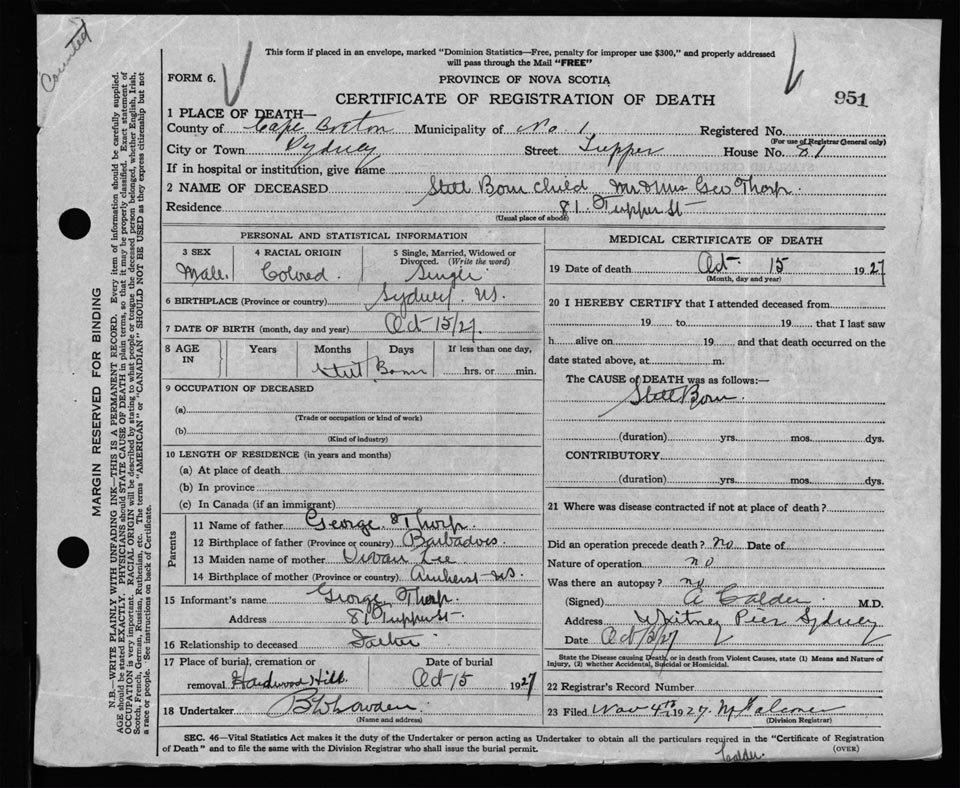 Counted
This form if placed in an envelope, marked "Dominion Statistics—Free, penalty for improper use $300," and properly addressed
will pass through the Mail "FREE"
FORM 6.
PROVINCE OF NOVA SCOTIA
CERTIFICATE OF REGISTRATION OF DEATH
951
1 PLACE OF DEATH—
County of Cape Breton Municipality of No. 1 Registered No.
(For use of Registrar General only)
City or Town Sydney Street Tupper House No. 81
If in hospital or institution, give name
2 NAME OF DECEASED Still Born child Mr & Mrs Geo Thorp.
Residence 81 Tupper St
(Usual place of abode)
PERSONAL AND STATISTICAL INFORMATION
3 SEX 4 RACIAL ORIGIN 5 Single, Married, Widowed or
Divorced. (Write the word)
Male. Colored. Single
6 BIRTHPLACE (Province or country) Sydney. NS.
7 DATE OF BIRTH (month, day and year) Oct 15/27.
8 AGE IN Years Months Days If less than one day,
Still Born hrs. or min.
9 OCCUPATION OF DECEASED
(a)
(Trade or occupation or kind of work)
(b)
(Kind of industry)
10 LENGTH OF RESIDENCE (in years and months)
(a) At place of death
(b) In province
(c) In Canada (if an immigrant)
Parents
11 Name of father George Thorp
12 Birthplace of father (Province or country) Barbadoes.
13 Maiden name of mother Lee
14 Birthplace of mother (Province or country) Amherst NS.
15 Informant's name George Thorp.
Address 81 Tupper St.
16 Relationship to deceased Father
17 Place of burial, cremation or Date of burial
removal Hardwood Hill Oct 15 1927
18 Undertaker
(Name and address)
MEDICAL CERTIFICATE OF DEATH
19 Date of death Oct. 15 1927
(Month, day and year)
20 I HEREBY CERTIFY that I attended deceased from
19 to 19 that I last saw
h alive on 19 and that death occurred on the
date stated above, at m.
The CAUSE of DEATH was as follows:—
Still Born.
(duration) yrs. mos. dys.
CONTRIBUTORY
(duration) yrs. mos. dys.
21 Where was disease contracted if not at place of death?
Did an operation precede death? no Date of
Nature of operation no
Was there an autopsy? no
(Signed) A Calder M.D.
Address Whitney Pier Sydney
Date Oct
State the Disease causing Death, or in death from Violent Causes, state (1) Means and Nature of
Injury, (2) whether Accidental, Suicidal or Homicidal.
22 Registrar's Record Number
23 Filed Nov 4th 1927.
(Division Registrar)
SEC. 46—Vital Statistics Act makes it the duty of the Undertaker or person acting as Undertaker to obtain all the particulars required in the "Certificate of Registration
of Death" and to file the same with the Division Registrar who shall issue the burial permit.
(OVER)
Calder.
MARGIN RESERVED FOR BINDING
N.B.—WRITE PLAINLY WITH UNFADING INK—THIS IS A PERMANENT RECORD. Every item of information should be carefully supplied.
AGE should be stated EXACTLY. PHYSICIANS should STATE CAUSE OF DEATH in plain terms, so that it may be properly classified. Exact statement of
OCCUPATION is very important. RACIAL ORIGIN will be described by stating to what people or tongue the deceased person belonged, whether English, Irish,
Scotch, French, German, Russian, Ruthenian, etc. The terms "AMERICAN" or "CANADIAN" SHOULD NOT BE USED as they express citizenship but not
a race or people. See instructions on back of Certificate.